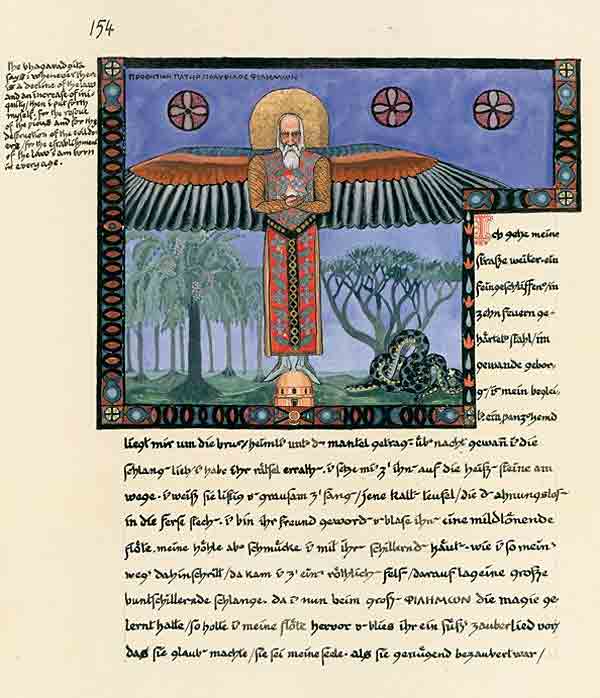 154
The bhagavadgita
says: whenever there
is a decline of the law
and an increase of ini-
quity/ then i put forth
myself. for the rescue
of the pious and for the
destruction of the evildo-
ers/ for the establishment
of the law i am born
in every age.
ΠΡΟΦΗΤΩΝ ΠΑΤΗΡ ΠΟΛΥΦΙΛΟΣ ΦΙΛΗΜΩΝ
Ich gehe meine
straße weiter. ein
feingeschliffen/ in
zehn feuern ge-
härtet stahl/ im
gewande gebor-
g/ i mein beglei-
t. ein panzerhemd
liegt mir um die brus/ heiml unt d mantel getrag. üb nacht gewan i die
schlang lieb/ i habe ihr rätsel errath. i setze mi z' ihn auf die heiß steine am
wege. i weiß sie listig v grausam z' fang/ jene kalt teufel/ die d ahnungslos
in die ferse stech. i bin ihr freund geword v blase ihn eine mildtönende
flöte. meine höhle ab schmücke i mit ihr schillernd häut. wie i so mein
weg dahinschritt/ da kam i z' ein röthlich fels/ darauf lag eine große
buntschillernde schlange. da i nun beim groß ΦΙΛΗΜΩΝ die magie ge-
lernt hatte/ so holte i meine flöte hervor v blies ihr ein süß zauberlied vor/
das sie glaub machte/ sie sei meine seele. als sie genügend bezaubert war/